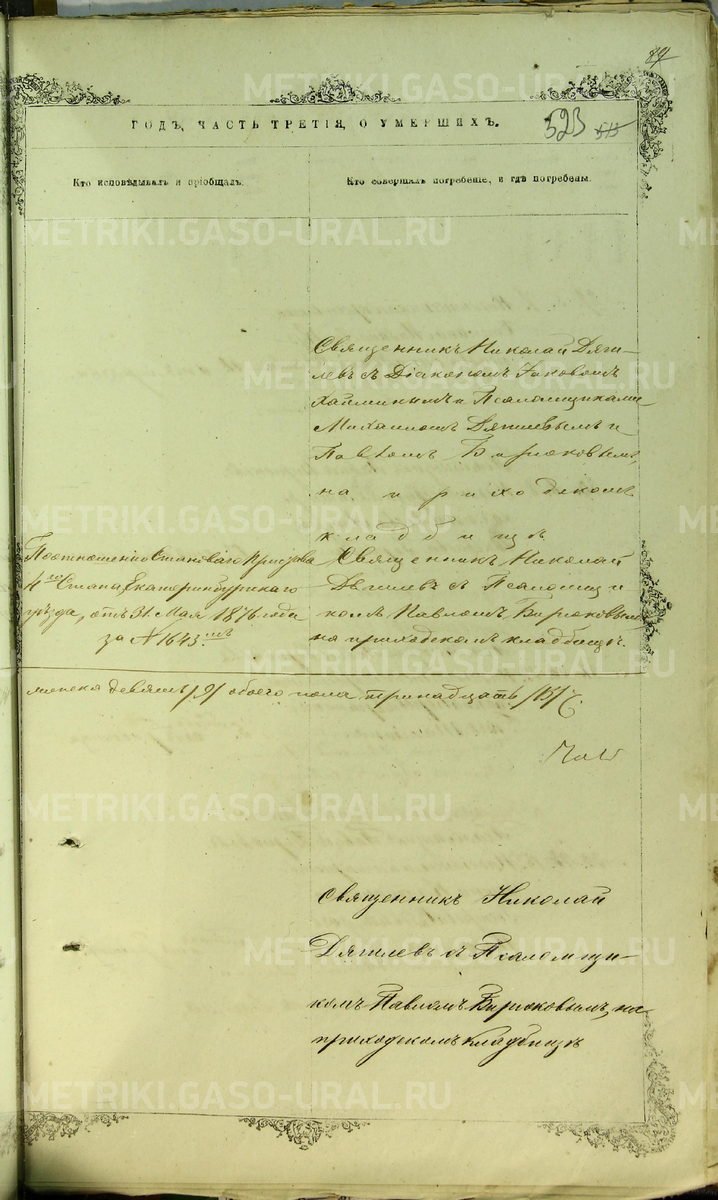 ГОДЪ, ЧАСТЬ ТРЕТІЯ, О УМЕРШИХЪ.
523 515
Кто исповѣдывалъ и пріобщалъ.
Кто совершалъ погребеніе, и гдѣ погребены.
Священникъ Николай Дяги-
левъ съ Діакономъ Іаковомъ
и Псаломщиками
Михаиломъ Дягилевымъ и
Павломъ Бирюковымъ,
на приходскомъ
кладбищѣ
По отношенію Становаго Пристава
4го Стана, Екатеринбургскаго
уѣзда, отъ 31 Мая 1876 года
за № 1643мъ
Священникъ Николай
Дягилевъ съ Псаломщи
комъ Павломъ Бирюковымъ
на приходскомъ кладбищѣ.
женска девять /9/ обоего пола тринадцать /13/
Священникъ Николай
Дягилевъ съ Псаломщи-
комъ Павломъ Бирюковымъ, на
приходскомъ кладбищѣ
METRIKI.GASO-URAL.RU